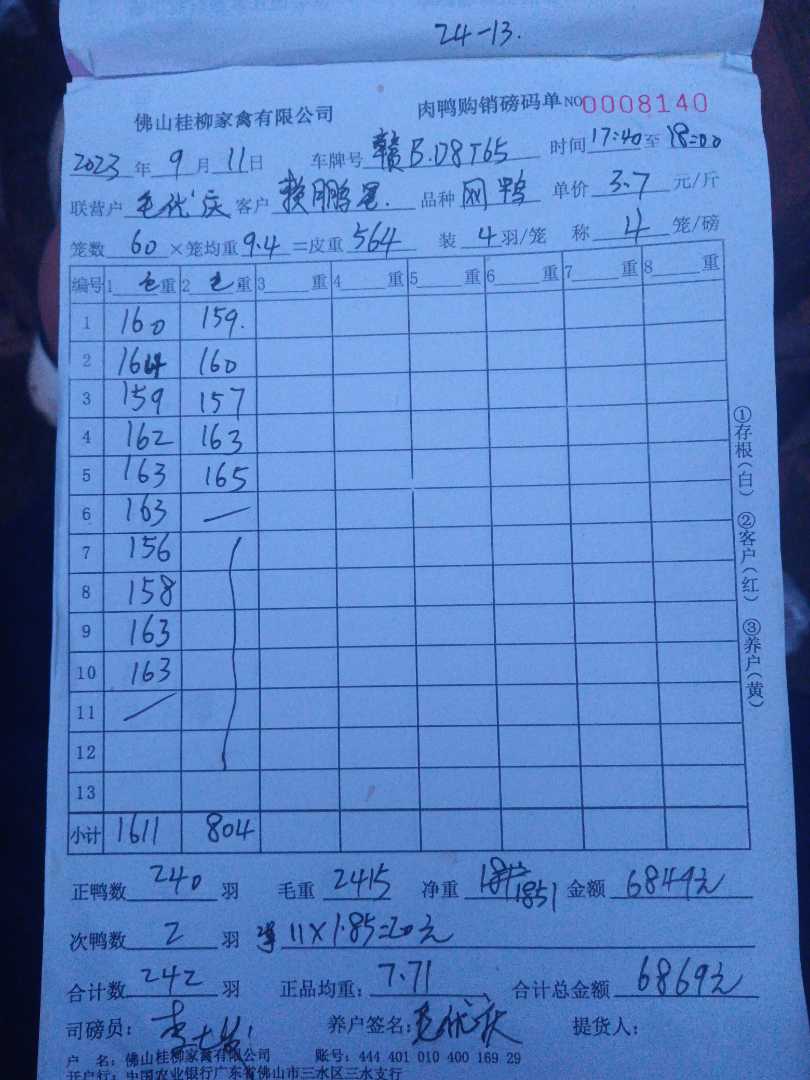 24-13.
佛山桂柳家禽有限公司 肉鸭购销磅码单 NO0008140
2023年9月11日 车牌号 赣B.D8T65 时间17:40至18:00
联营户 毛优庆 客户 赖鹏 品种 网鸭 单价 3.7 元/斤
笼数 60 ×笼均重 9.4 =皮重 564 装 4 羽/笼 称 4 笼/磅
编号 1 毛重 2 毛重 3 重 4 重 5 重 6 重 7 重 8 重
1 160 159.
2 164 160
3 159 157
4 162 163
5 163 165
6 163 —
7 156
8 158
9 163
10 163
11
12
13
小计 1611 804
正鸭数 240 羽 毛重 2415 净重 1851 金额 6849元
次鸭数 2 羽 11×1.85=20元
合计数 242 羽 正品均重: 7.71 合计总金额 6869元
司磅员: 养户签名: 毛优庆 提货人:
户 名: 佛山桂柳家禽有限公司 账号: 444 401 010 400 169 29
开户行: 中国农业银行广东省佛山市三水区三水支行
①存根(白) ②客户(红) ③养户(黄)